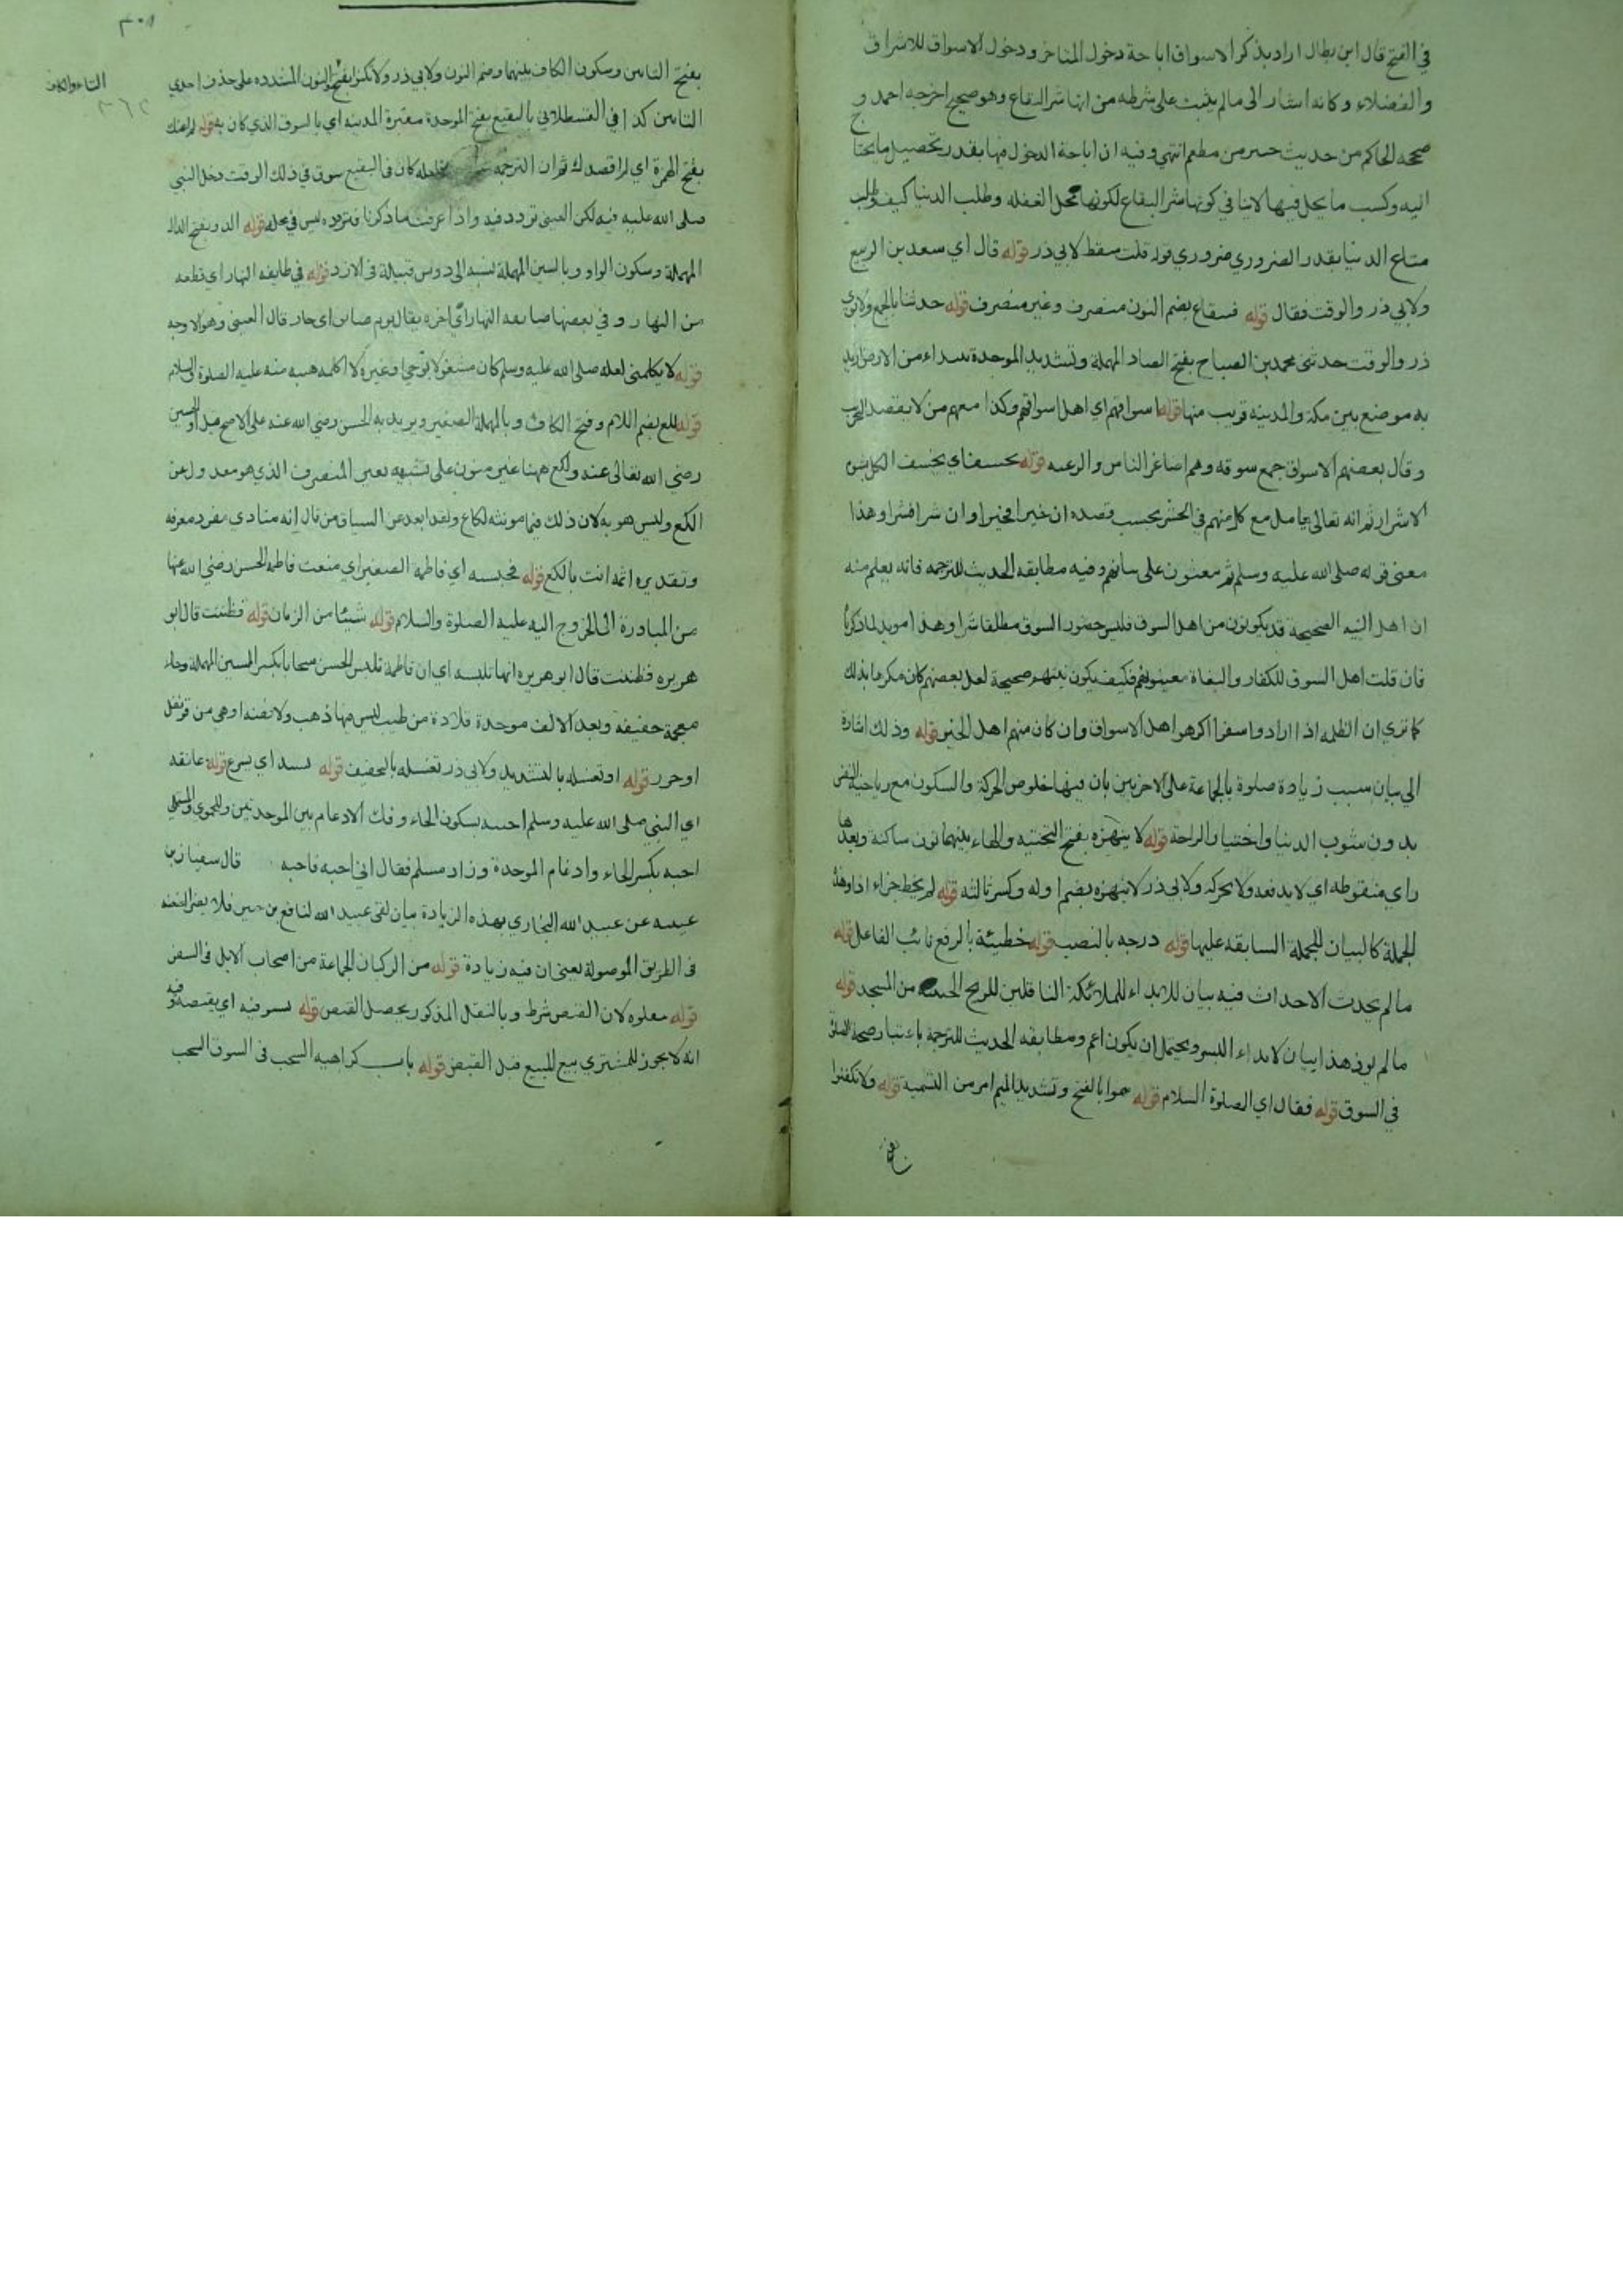 في الفتح قال ابن بطال اراد بذكر الاسواق اباحة دخول المتاخر ودخول الاسواق للاشراف
والفضلاء وكانه اشار الى ما لم يثبت على شرطه من انها شر البقاع وهو صحيح اخرجه احمد و
صححه الحاكم من حديث جبير بن مطعم انتهى وفيه ان اباحة الدخول فيها بقدر تحصيل ما يحتاج
اليه وكسب ما يحل فيها لا ينافي كونها شر البقاع لكونها محل الغفلة وطلب الدنيا كيف وطلب
متاع الدنيا بقدر الضروري ضروري قوله قلت سقط لابي ذر قوله قال اي سعد بن الربيع
ولابي ذر والوقت فقال قوله قينقاع بضم النون منصرف وغير منصرف قوله حدثنا بالجمع ولابوي
ذر والوقت حدثني محمد بن الصباح بفتح الصاد المهملة وتشديد الموحدة ببيداء من الارض اريد
به موضع بين مكة والمدينة قريب منها قوله اسواقهم اي اهل اسواقهم وكذا معهم من لا يقصد التخريب
وقال بعضهم الاسواق جمع سوقه وهم اصاغر الناس والرعيه قوله يخسف اي يخسف الكل بشوم
الاشرار ثم انه تعالى يعامل مع كل منهم في الحشر بحسب قصده ان خيرا فخيرا وان شرا فشرا وهذا
معنى قوله صلى الله عليه وسلم ثم يبعثون على نياتهم وفيه مطابقة الحديث للترجمة فانه يعلم منه
ان اهل النيه الصحيحة قد يكونون من اهل السوق فليس حضور السوق مطلقا شرا وهذا مويد لما ذكرنا
فان قلت اهل السوق للكفار والبغاة معينونهم فكيف يكون نيتهم صحيحة لعل بعضهم كان مكرها بذلك
كما ترى ان الظلمه اذا ارادوا سفرا اكرهوا اهل الاسواق وان كان منهم اهل الخير قوله وذلك اشارة
الى بيان سبب زيادة صلوة بالجماعة على الاخريين بان فيها خلوص الحركة والسكون مع رياضية النفس
بدون شوب الدنيا واختيار الراحة قوله لا ينهزه بفتح التحتيه والهاء بينهما نون ساكنة وبعدها
زاي منقوطه اي لا يدفعه ولا يحركه ولابي ذر لا ينهزه بضم اوله وكسر ثالثه قوله لم يخط جزاء اذا وهذه
الجملة كالبيان للجملة السابقه عليها قوله درجه بالنصب قوله خطيئة بالرفع نائب الفاعل قوله
ما لم يحدث الاحداث فيه بيان للايذاء للملائكة الناقلين للريح الخبيثة من المسجد قوله
ما لم يوذ هذا بيان لايذاء البشر ويحتمل ان يكون اعم ومطابقه الحديث للترجمة باعتبار صحة الصلوة
في السوق قوله فقال اي الصلوة السلام قوله سموا بالفتح وتشديد الميم امر من التسمية قوله ولا تكنوا
بفتح
بفتح التائين وسكون الكاف بينهما وضم النون ولابي ذر ولا تكنوا بفتح والنون المشدده على حذف احدى
التاء والكاف
التائين كذا في القسطلاني بالبقيع بفتح الموحدة مقبرة المدينه اي بالسوق الذي كان به قوله لم اعنك
بفتح الهمزة اي لم اقصدك ثم ان الترجمه فلعله كان في البقيع سوق في ذلك الوقت دخل النبي
صلى الله عليه فيه لكن العينى تردد فيه واذا عرفت ما ذكرنا فتردده ليس في محله قوله الدوسي بفتح الدال
المهملة وسكون الواو وبالسين المهملة نسبه الى دوس قبيلة في الازد قوله في طايفه النهار اي قطعه
من النهار وفي بعضها صايفه النهار اي اخره يقال يوم صائف اي حار قال العينى وهو الاوجه
قوله لا يكلمنى لعله صلى الله عليه وسلم كان مشغولا بوحي او غيره لا اكلمه هيبه منه عليه الصلوة والسلام
قوله لكع بضم اللام وفتح الكاف وبالمهملة الصغير ويريد به الحسن رضي الله عنه على الاصح قيل او الحسين
رضى الله تعالى عنه ولكع ههنا غير منون على تشبيهه يعنى المنصرف الذي هو معدول عن
الكع وليس هو به لان ذلك فيما مونثه لكاع ولقد ابعد عن السياق من قال انه منادى مفرد معرفه
وتقديره اثمه انت يا لكع قوله فحبسه اي فاطمة الصغير اي منعت فاطمه الحسن رضي الله عنها
من المبادرة الى الخروج اليه عليه الصلوة والسلام قوله شيئا من الزمان قوله فظننت قال ابو
هريره فظننت قال ابو هريره انها تلبسه اي ان فاطمة تلبس الحسن سخابا بكسر السين المهملة وخاء
معجمة خفيفه وبعد الالف موحدة قلادة من طيب ليس فيها ذهب ولا فضه او هي من قرنفل
او خرز قوله او تغسله بالتشديد ولابي ذر تغسله بالتخفيف قوله يشتد اي يسرع قوله عانقه
اي النبي صلى الله عليه وسلم احببه بسكون الحاء وفك الادغام بين الموحدتين وللحموي والمستملي
احبه بكسر الحاء وادغام الموحدة وزاد مسلم فقال انى احبه فاحبه قال سفيان بن
عيينه عن عبيد الله البخاري بهذه الزيادة بيان لقى عبيد الله لنافع بن جبير فلا يضر العنعنه
في الطريق الموصولة يعنى ان فيه زيادة قوله من الركبان الجماعة من اصحاب الابل في السفر
قوله ينقلوه لان القبض شرط وبالنقل المذكور يحصل القبض قوله يستوفيه اي يقبضه وفيه
انه لا يجوز للمشتري بيع المبيع قبل القبض قوله باب كراهيه السخب في السوق السخب